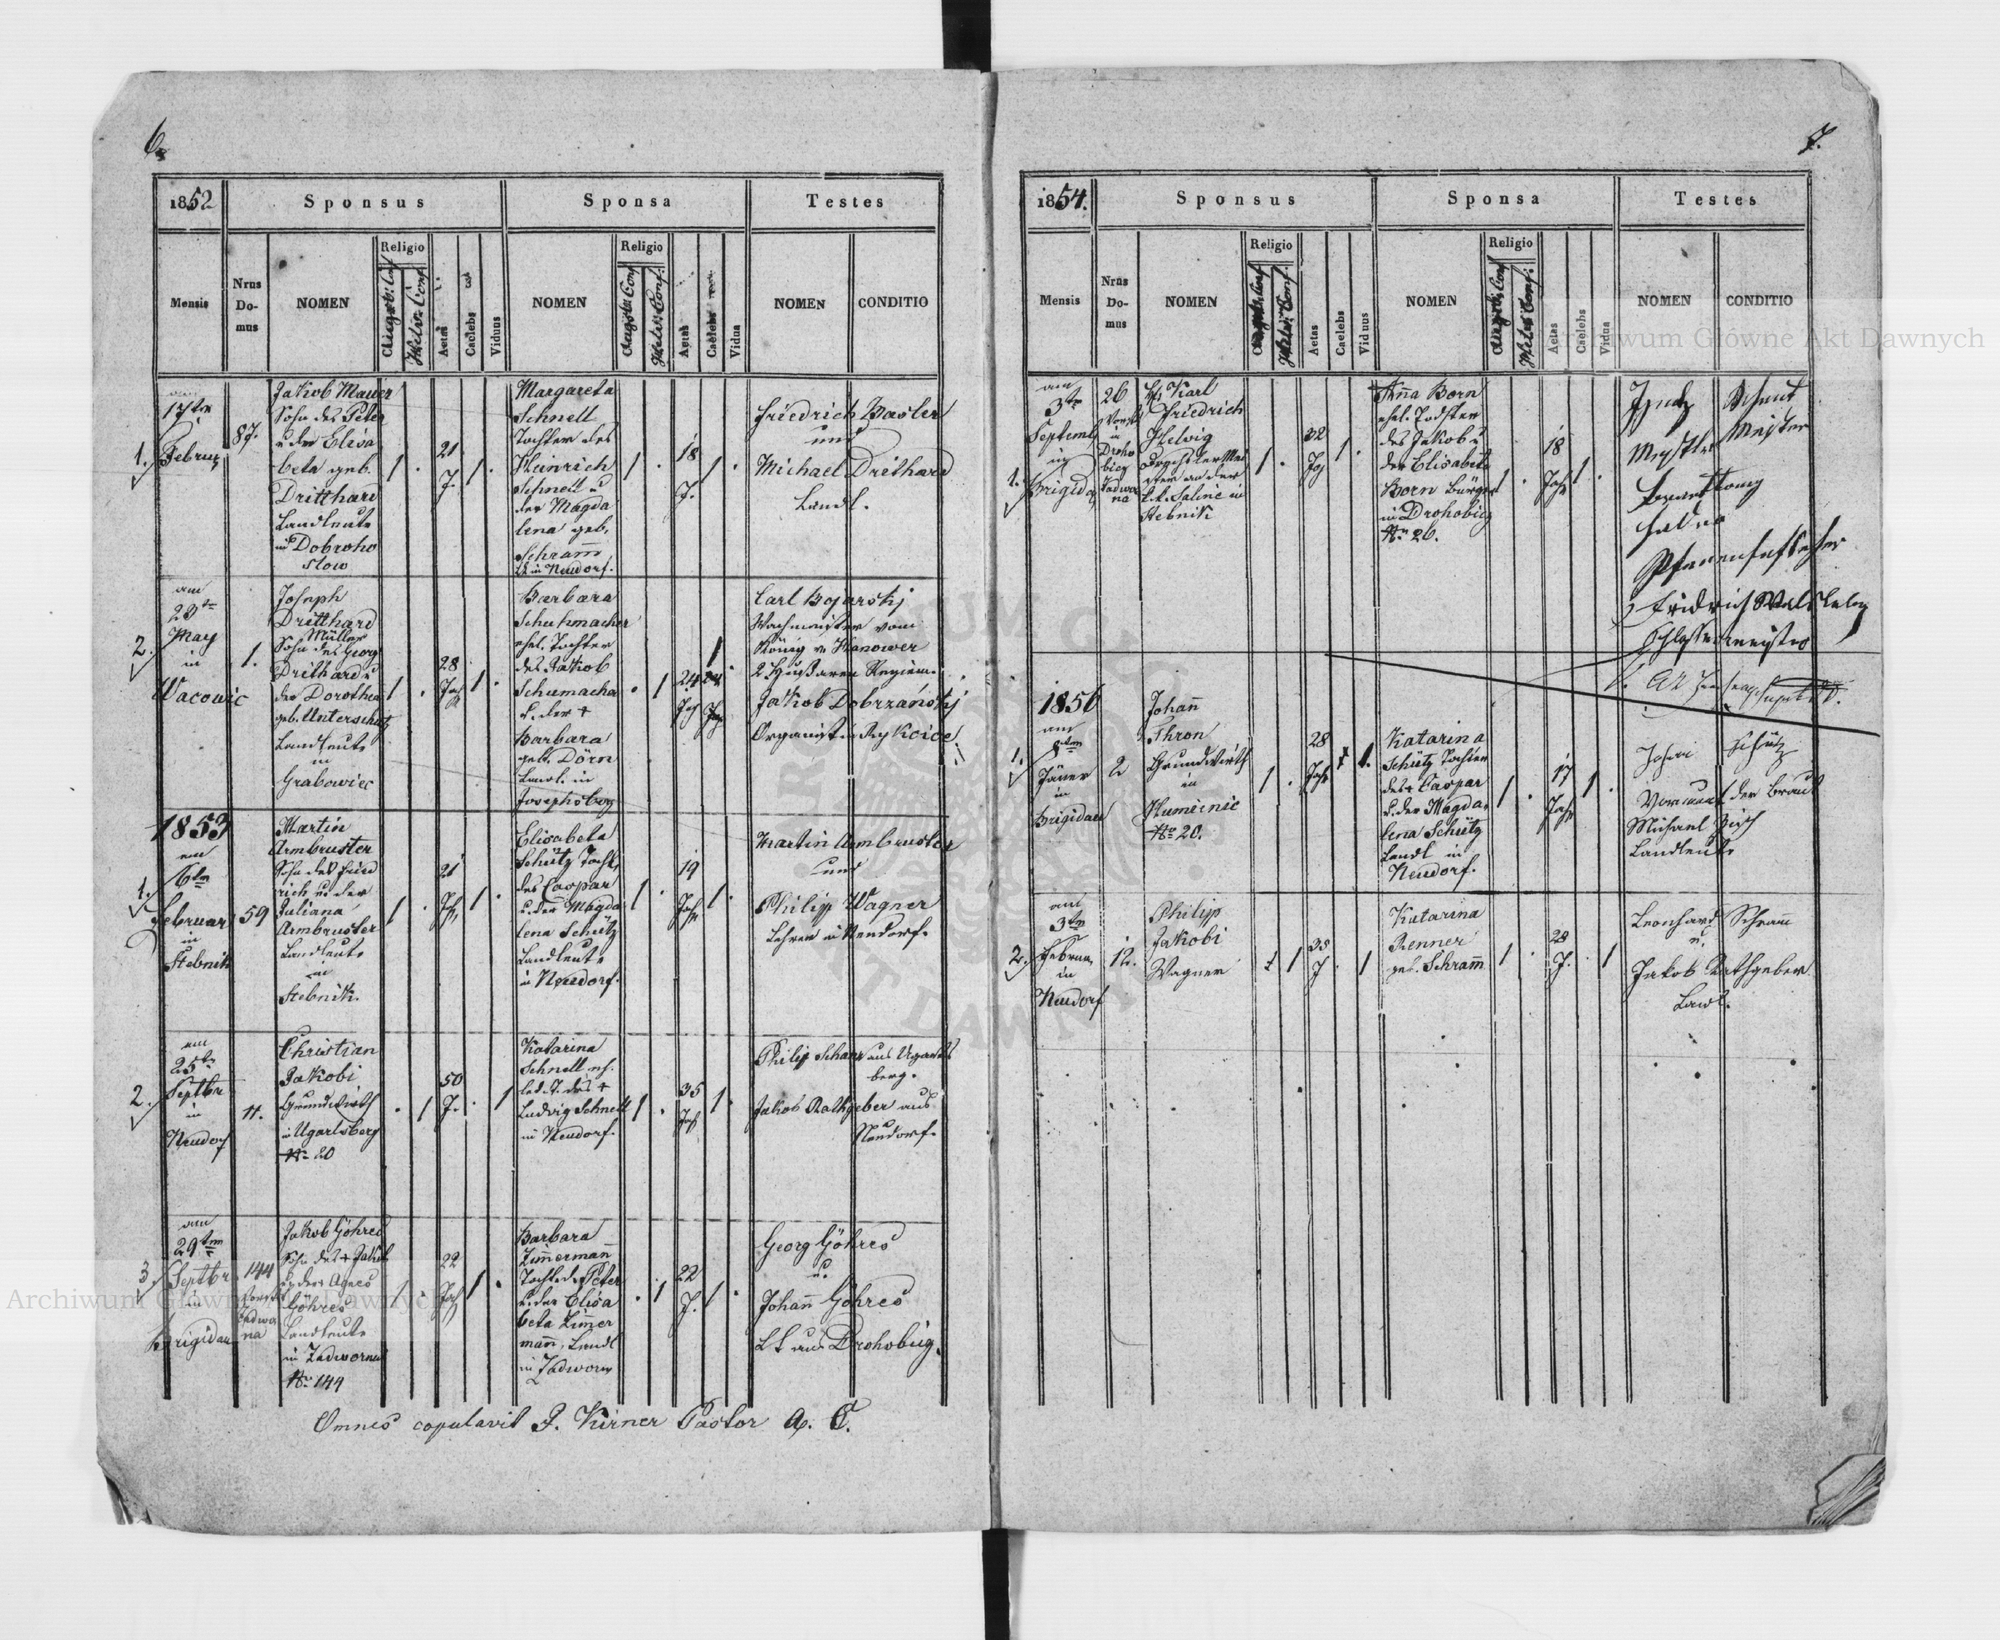 6.
1852
Sponsus
Sponsa
Testes
Mensis
Nrus Domus
NOMEN
Religio
Augsb: Conf
Helv: Conf.
Aetas
Caelebs
Viduus
NOMEN
Religio
Augsb Conf
Helv: Conf.
Aetas
Caelebs
Vidua
NOMEN
CONDITIO
1.
am
17ten
Februar
87.
Jakob Mauer
Sohn des Peter
u der Elisa
beta geb.
Dritthard
Landleute
in Dobroho
stow
1 .
21
J.
1 .
Margareta
Schnell
Tochter des
Heinrich
Schnell u
der Magda
lena geb.
Schram̄
LL in Neudorf.
1 .
18
J.
1 .
Friedrich Basler
und
Michael Drithard
Landl.
2.
am
23ten
May
in
Wacowic
1.
Joseph
Dritthard
Müller
Sohn des Georg
Drithard u
der Dorothea
geb. Unterschütz
Landleute
in
Grabowiec
1 .
28
Jah
1 .
Barbara
Schuhmacher
ehel. Tochter
des Jakob
Schumacher
u. der +
Barbara
geb. Dörn
Landl. in
Josephsberg
. 1
24
Jah
1
Carl Bojarskj
Wachmeister vom
König v Hanower
2 Hußaren Regiem.
Jakob Dobrzanskj
Organist in Rykcice
1853
1.
am
6ten
Februar
in
Stebnik
59
Martin
Armbruster
Sohn des Fried
rich u. der
Juliana
Armbruster
Landleute
in
Stebnik.
1 .
21
Jah
1 .
Elisabeta
Schütz Tocht.
des Caspar
u. der Magda
lena Schütz
Landleute
in Neudorf.
1 .
19
Jahr
1 .
Martin Armbruster
und
Philip Wagner
Lehrer in Neudorf.
2.
am
25te
Septbr
in
Neudorf
11.
Christian
Jakobi
Grundwirth
in Ugartsberg
Nr 20
. 1
50
J.
. 1
Katarina
Schnell
led. T. des +
Ludwig Schnell
in Neudorf.
1 .
35
Jah
1 .
Philip Schanz aus Ugarts
berg.
Jakob Rathgeber aus
Neudorf.
3.
am
29ten
Septbr
in
Brigidau
144
Vorst
Zadwor
na
Jakob Göhres
Sohn des + Jakob
u. der Agnes
Göhres
Landleute
in Zadworna
Nr 144
1 .
22
Jah
1 .
Barbara
Zim̄erman̄
Tocht. des Peter
u. der Elisa
beta Zim̄er
man̄, Landl
in Zadworn
. 1
22
J.
1 .
Georg Göhres
u.
Johan̄ Göhres
LL aus Drohobicg.
Omnes copulavit J. Kirner Pastor A. C.
7.
1854.
Sponsus
Sponsa
Testes
Mensis
Nrus Domus
NOMEN
Religio
Augsb: Conf
Helv: Conf.
Aetas
Caelebs
Viduus
NOMEN
Religio
Augsb: Conf
Helv: Conf.
Aetas
Caelebs
Vidua
NOMEN
CONDITIO
1.
am
3te
Septemb
in
Brigidau
26
Vorst
in
Droho
bicg
Zadwor
na
H. Karl
Friedrich
Helvig
ster an der
k.k. Saline in
Stebnik
1 .
32
Jah
1 .
An̄a Born
ehel. Tochter
des Jakob u
der Elisabeta
Born Bürger
in Drohobicg
Nr 26.
1 .
18
Jahr
1 .
Meister
Fridrich
1856
1.
am
8ten
Jäner
in
Brigidau
2
Johan̄
Thron
Grundwirth
in
Humienic
Nr 20.
1 .
28
Jahr
1.
Katarina
Schütz Tochter
des + Caspar
u. der Magda
lena Schütz
Landl in
Neudorf.
1 .
17
Jahr
1 .
Johan Schütz
Vormund der Braut
Michael
Landleute
2.
am
3ten
Februar
in
Neudorf
12.
Philip
Jakobi
Wagner
1
35
J.
. 1
Katarina
Renner
geb. Schram̄
1 .
28
J.
. 1
Leonhard Schram̄
u.
Jakob Rathgeber
Landl.
Archiwum Główne Akt Dawnych
Archiwum Główne Akt Dawnych